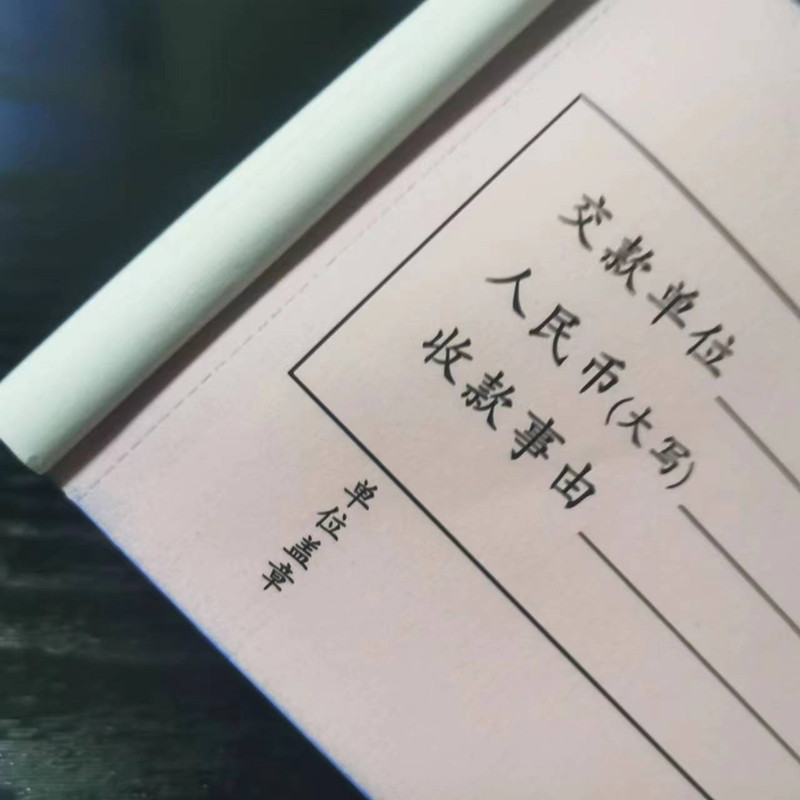 交款单位
人民币(大写)
收款事由
单位盖章